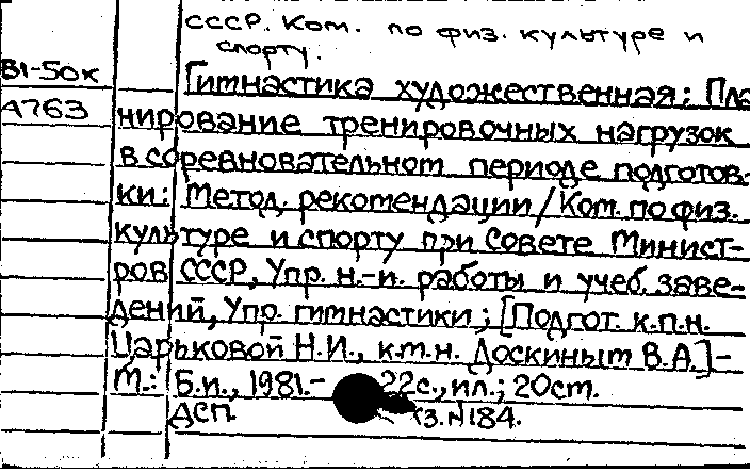 СССР. Ком. по физ. культуре и
спорту.
В1-50к Гимнастика художественная: Пла-
А763 нирование тренировочных нагрузок
в соревновательном периоде подготов-
ки: Метод. рекомендации/Ком. по физ.
культуре и спорту при Совете Минист-
ров СССР, Упр. н.-и. работы и учеб. заве-
дений, Упр. гимнастики; [Подгот. к.п.н.
Царьковой Н.И., к.м.н. Доскиным В.А.]-
М.: Б.и., 1981.- 22с., ил.; 20см.
ДСП. з. N184.